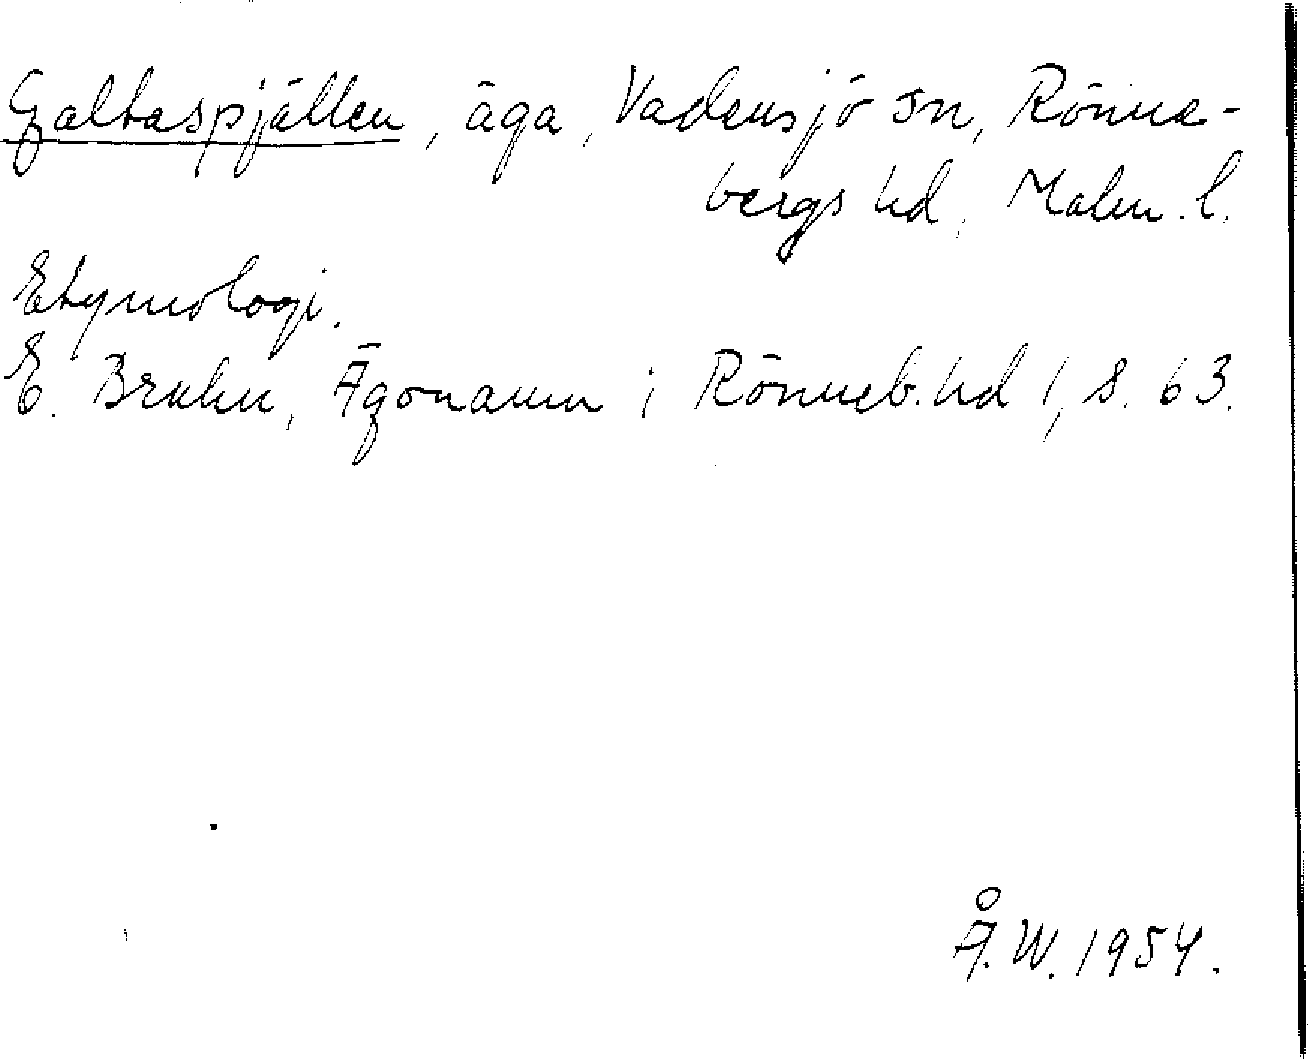 Galtaspjällen, äga, Vadensjö sn, Rönne-
bergs hd, Malm. l.
Etymologi.
E. Bruhn, Ägonamn i Rönneb. hd 1, s. 63.
Å. W. 1954.